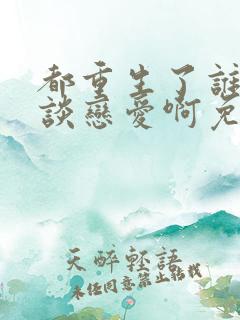 都重生了誰
談戀愛啊免
天醉輕語
未经同意禁止转载